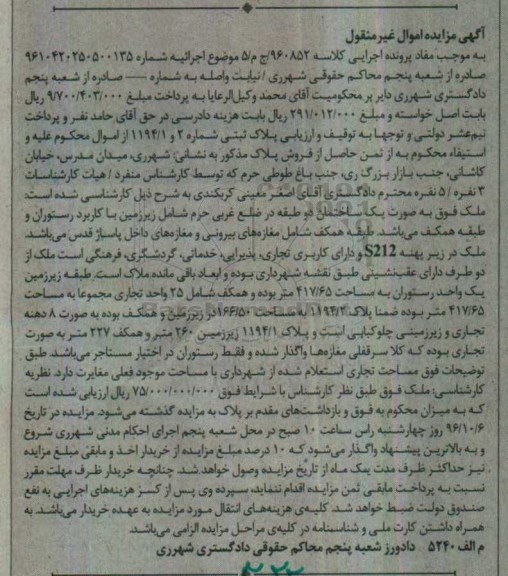 آگهی مزایده اموال غیرمنقول
به موجب مفاد پرونده اجرایی کلاسه ۹۶۰۸۵۲/ج م/۵ موضوع اجرائیه شماره ۹۶۱۰۴۲۰۲۵۰۵۰۰۱۳۵
صادره از شعبه پنجم محاکم حقوقی شهرری / نیابت واصله به شماره —— صادره از شعبه پنجم
دادگستری شهرری دایر بر محکومیت آقای محمد وکیل‌الرعایا به پرداخت مبلغ ۹/۷۰۰/۴۰۳/۰۰۰ ریال
بابت اصل خواسته و مبلغ ۲۹۱/۰۱۲/۰۰۰ ریال بابت هزینه دادرسی در حق آقای حامد نفر و پرداخت
نیم‌عشر دولتی و توجها به توقیف و ارزیابی پلاک ثبتی شماره ۲ و ۱۱۹۴/۱ از اموال محکوم علیه و
استیفاء محکوم به از ثمن حاصل از فروش پلاک مذکور به نشانی: شهرری، میدان مدرس، خیابان
کاشانی، جنب بازار بزرگ ری، جنب باغ طوطی حرم که توسط کارشناس منفرد / هیات کارشناسات
۳ نفره / ۵ نفره محترم دادگستری آقای اصغر معینی کربکندی به شرح ذیل کارشناسی شده است:
ملک فوق به صورت یک ساختمان دو طبقه در ضلع غربی حرم شامل زیرزمین با کاربرد رستوران و
طبقه همکف می‌باشد. طبقه همکف شامل مغازه‌های بیرونی و مغازه‌های داخل پاساژ قدس می‌باشد.
ملک در زیر پهنه S212 و دارای کاربری تجاری، پذیرایی، خدماتی، گردشگری، فرهنگی است ملک از
دو طرف دارای عقب‌نشینی طبق نقشه شهرداری بوده و ابعاد باقی مانده ملاک است. طبقه زیرزمین
یک واحد رستوران به مساحت ۴۱۷/۶۵ متر بوده و همکف شامل ۲۵ واحد تجاری مجموعا به مساحت
۴۱۷/۶۵ متر بوده ضمنا پلاک ۱۱۹۴/۲ به مساحت ۱۶۶/۵۰ در زیرزمین و همکف بوده به صورت ۸ دهنه
تجاری و زیرزمینی چلوکبابی است و پلاک ۱۱۹۴/۱ زیرزمین ۲۶۰ متر و همکف ۲۲۷ متر به صورت
تجاری بوده که کلا سرقفلی مغازه‌ها واگذار شده و فقط رستوران در اختیار مستاجر می‌باشد. طبق
توضیحات فوق مساحت تجاری استعلام شده از شهرداری با مساحت موجود فعلی مغایرت دارد. نظریه
کارشناسی: ملک فوق طبق نظر کارشناس با شرایط فوق ۷۵/۰۰۰/۰۰۰/۰۰۰ ریال ارزیابی شده است
که به میزان محکوم به فوق و بازداشت‌های مقدم بر پلاک به مزایده گذشته می‌شود مزایده در تاریخ
۹۶/۱۰/۶ روز چهارشنبه راس ساعت ۱۰ صبح در محل شعبه پنجم اجرای احکام مدنی شهرری شروع
و به بالاترین پیشنهاد واگذار می‌شود که ۱۰ درصد مبلغ مزایده از خریدار اخذ و مابقی مبلغ مزایده
نیز حداکثر ظرف مدت یک ماه از تاریخ مزایده وصول خواهد شد. چنانچه خریدار ظرف مهلت مقرر
نسبت به پرداخت مابقی ثمن مزایده اقدام ننماید، سپرده وی پس از کسر هزینه‌های اجرایی به نفع
صندوق دولت ضبط خواهد شد. کلیه‌ی هزینه‌های انتقال مورد مزایده به عهده خریدار می‌باشد. به
همراه داشتن کارت ملی و شناسنامه در کلیه‌ی مراحل مزایده الزامی می‌باشد.
م الف ۵۲۴۰ دادورز شعبه پنجم محاکم حقوقی دادگستری شهرری